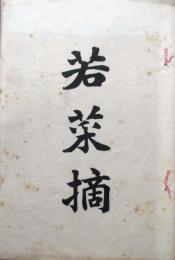 若菜摘